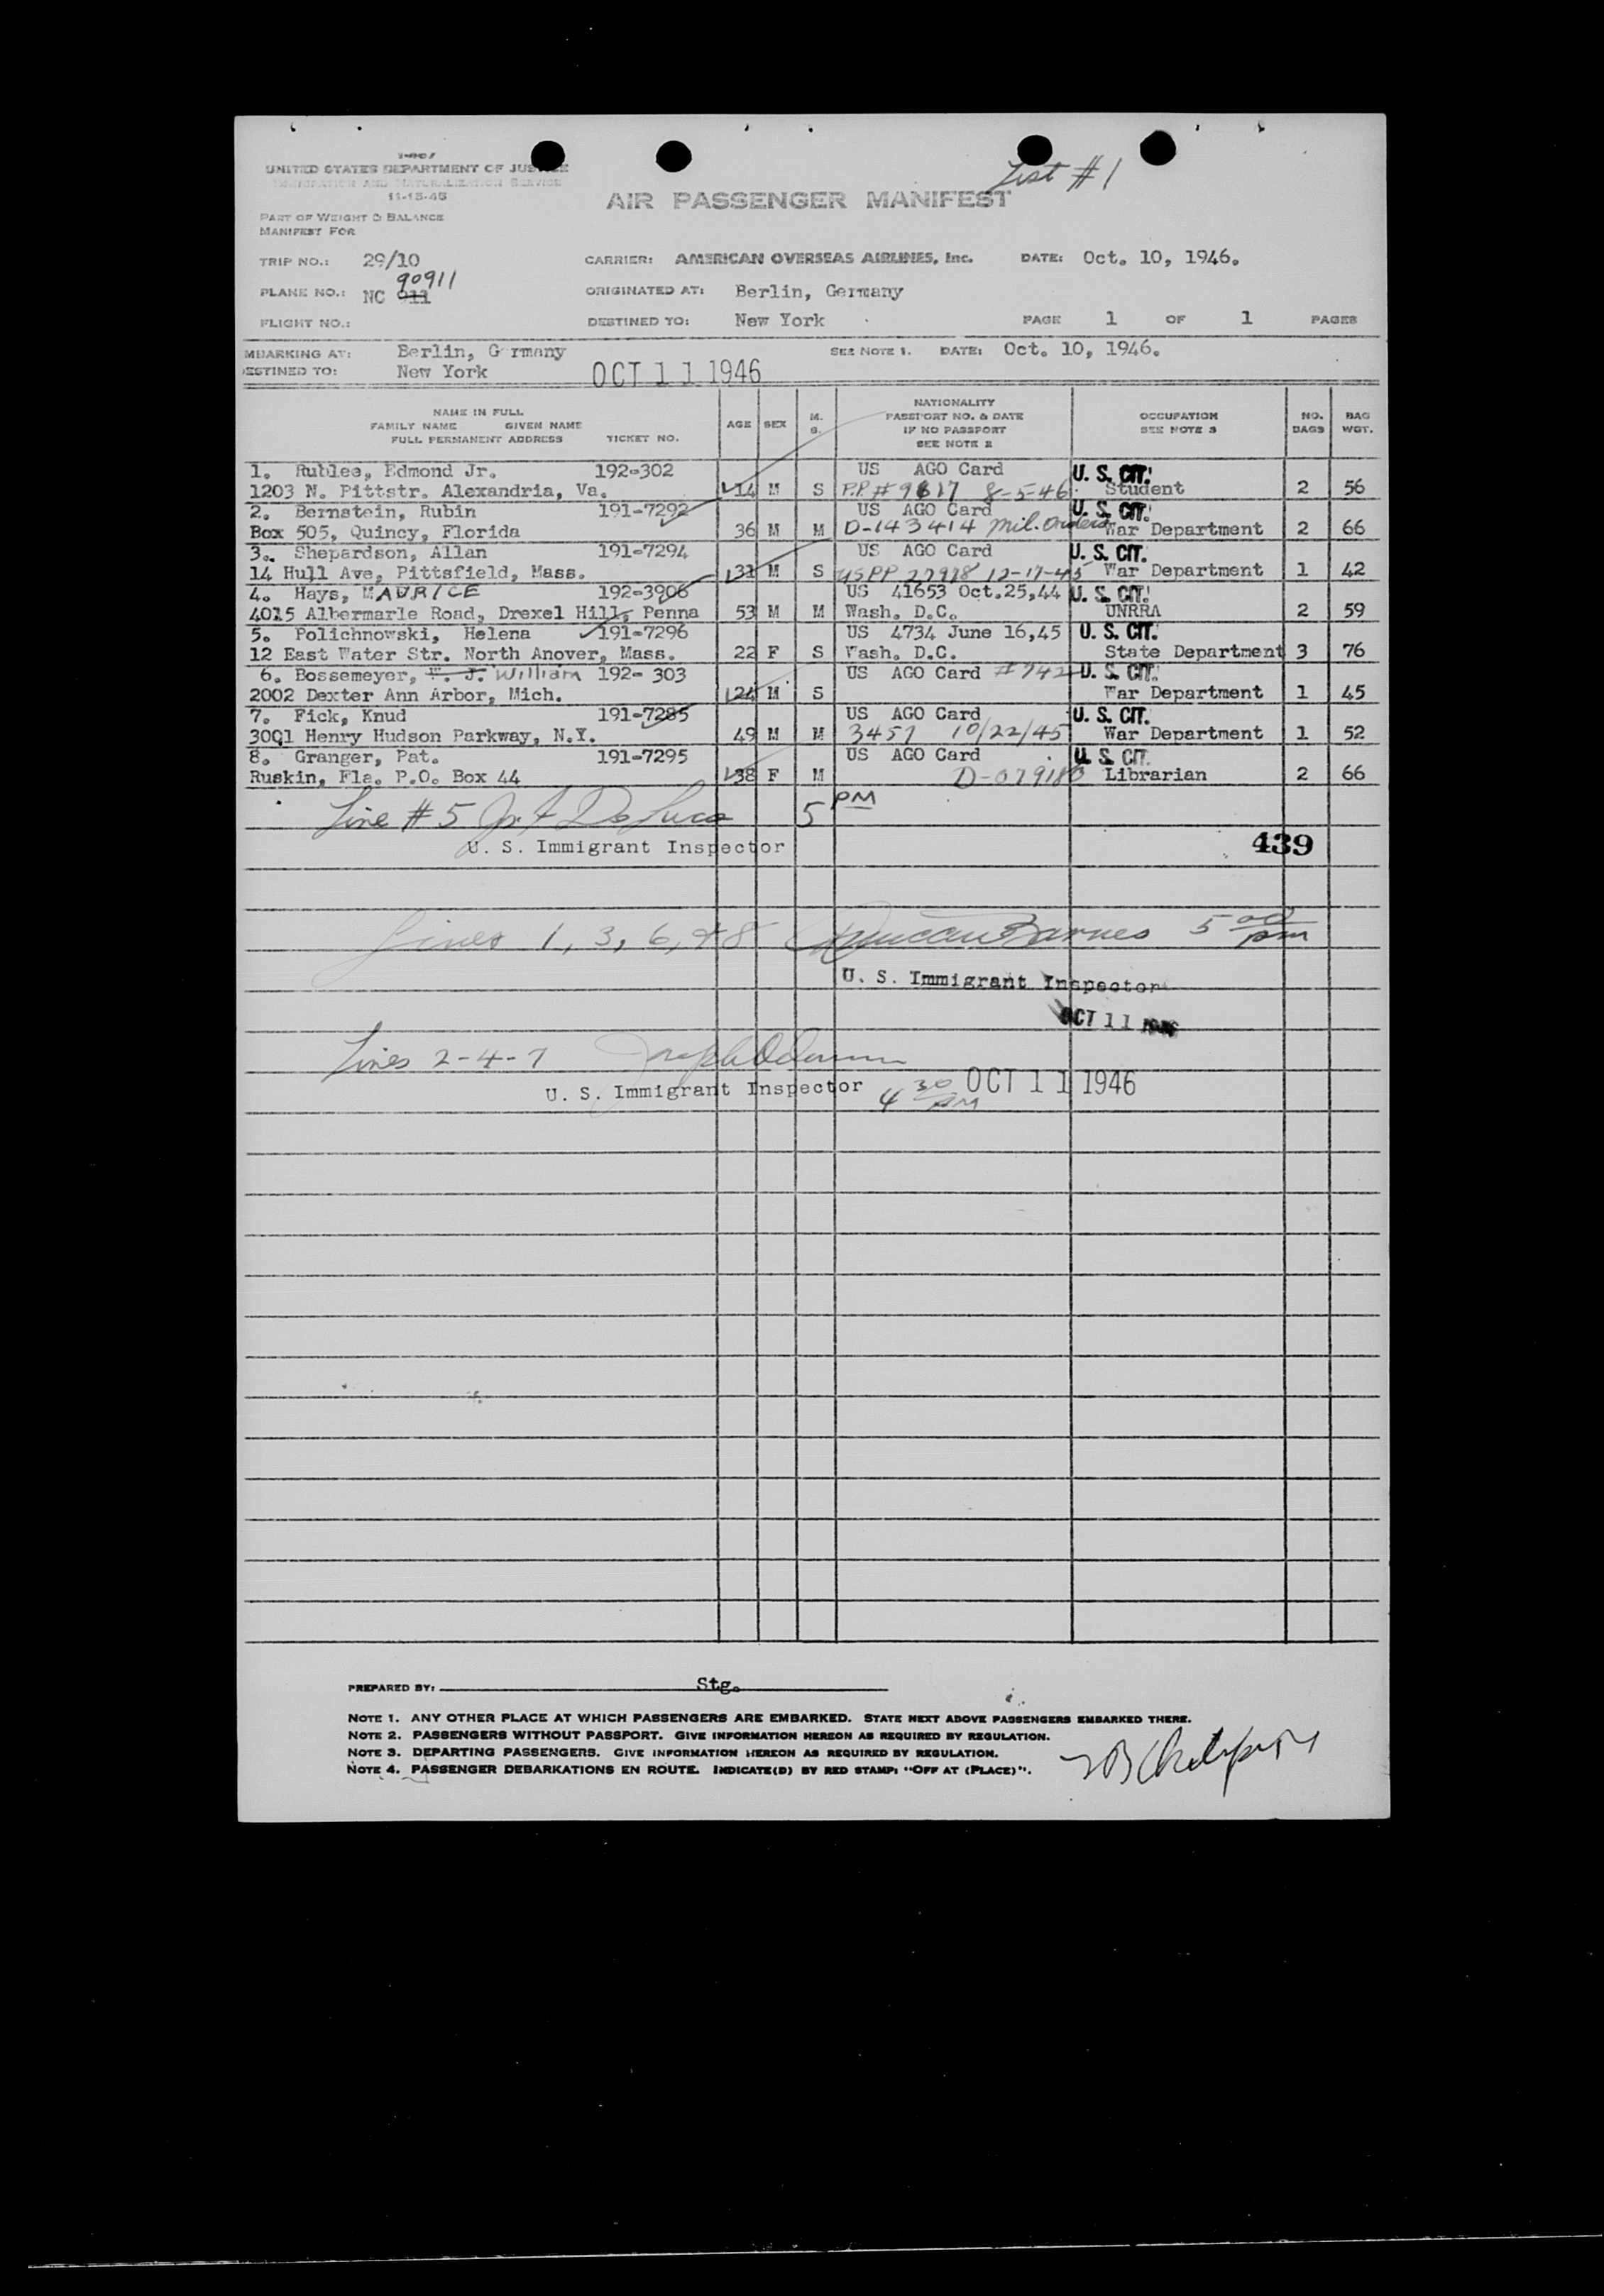 List #1
UNITED STATES DEPARTMENT OF JUSTICE
IMMIGRATION AND NATURALIZATION SERVICE
11-15-45
AIR PASSENGER MANIFEST
PART OF WEIGHT & BALANCE
MANIFEST FOR
TRIP NO.: 29/10 CARRIER: AMERICAN OVERSEAS AIRLINES, Inc. DATE: Oct. 10, 1946.
90911
PLANE NO.: NC 911 ORIGINATED AT: Berlin, Germany
FLIGHT NO.: DESTINED TO: New York PAGE 1 OF 1 PAGES
MBARKING AT: Berlin, G rmany SEE NOTE 1. DATE: Oct. 10, 1946.
ESTINED TO: New York OCT 11 1946
NAME IN FULL
FAMILY NAME GIVEN NAME
FULL PERMANENT ADDRESS TICKET NO. AGE SEX M. S. NATIONALITY PASSPORT NO. & DATE IF NO PASSPORT SEE NOTE 2 OCCUPATION SEE NOTE 3 NO. BAGS BAG WGT.
1. Rublee, Edmond Jr. 192-302 US AGO Card U. S. CIT.
1203 N. Pittstr. Alexandria, Va. 14 M S P.P.# 9617 8-5-46 Student 2 56
2. Bernstein, Rubin 191-7292 US AGO Card U. S. CIT.
Box 505, Quincy, Florida 36 M M D-143414 Mil. Orders War Department 2 66
3. Shepardson, Allan 191-7294 US AGO Card U. S. CIT.
14 Hull Ave, Pittsfield, Mass. 31 M S US PP 27978 12-17-45 War Department 1 42
4. Hays, MAURICE 192-3906 US 41653 Oct.25,44 U. S. CIT.
4015 Albermarle Road, Drexel Hill, Penna 53 M M Wash. D.C. UNRRA 2 59
5. Polichnowski, Helena 191-7296 US 4734 June 16,45 U. S. CIT.
12 East Water Str. North Anover, Mass. 22 F S Wash. D.C. State Department 3 76
6. Bossemeyer, W. J. William 192- 303 US AGO Card #742 U. S. CIT.
2002 Dexter Ann Arbor, Mich. 24 M S War Department 1 45
7. Fick, Knud 191-7285 US AGO Card U. S. CIT.
3001 Henry Hudson Parkway, N.Y. 49 M M 3457 10/22/45 War Department 1 52
8. Granger, Pat. 191-7295 US AGO Card U. S. CIT.
Ruskin, Fla. P.O. Box 44 38 F M D-079180 Librarian 2 66
Line #5 De Luca 5 PM
U. S. Immigrant Inspector 439
Lines 1, 3, 6, & 8 Duncan Barnes 5 00 pm
U. S. Immigrant Inspector
OCT 11 1946
Lines 2-4-7
U. S. Immigrant Inspector 4 30 PM OCT 11 1946
PREPARED BY: Stg.
NOTE 1. ANY OTHER PLACE AT WHICH PASSENGERS ARE EMBARKED. STATE NEXT ABOVE PASSENGERS EMBARKED THERE.
NOTE 2. PASSENGERS WITHOUT PASSPORT. GIVE INFORMATION HEREON AS REQUIRED BY REGULATION.
NOTE 3. DEPARTING PASSENGERS. GIVE INFORMATION HEREON AS REQUIRED BY REGULATION.
NOTE 4. PASSENGER DEBARKATIONS EN ROUTE. INDICATE(D) BY RED STAMP: "OFF AT (PLACE)".